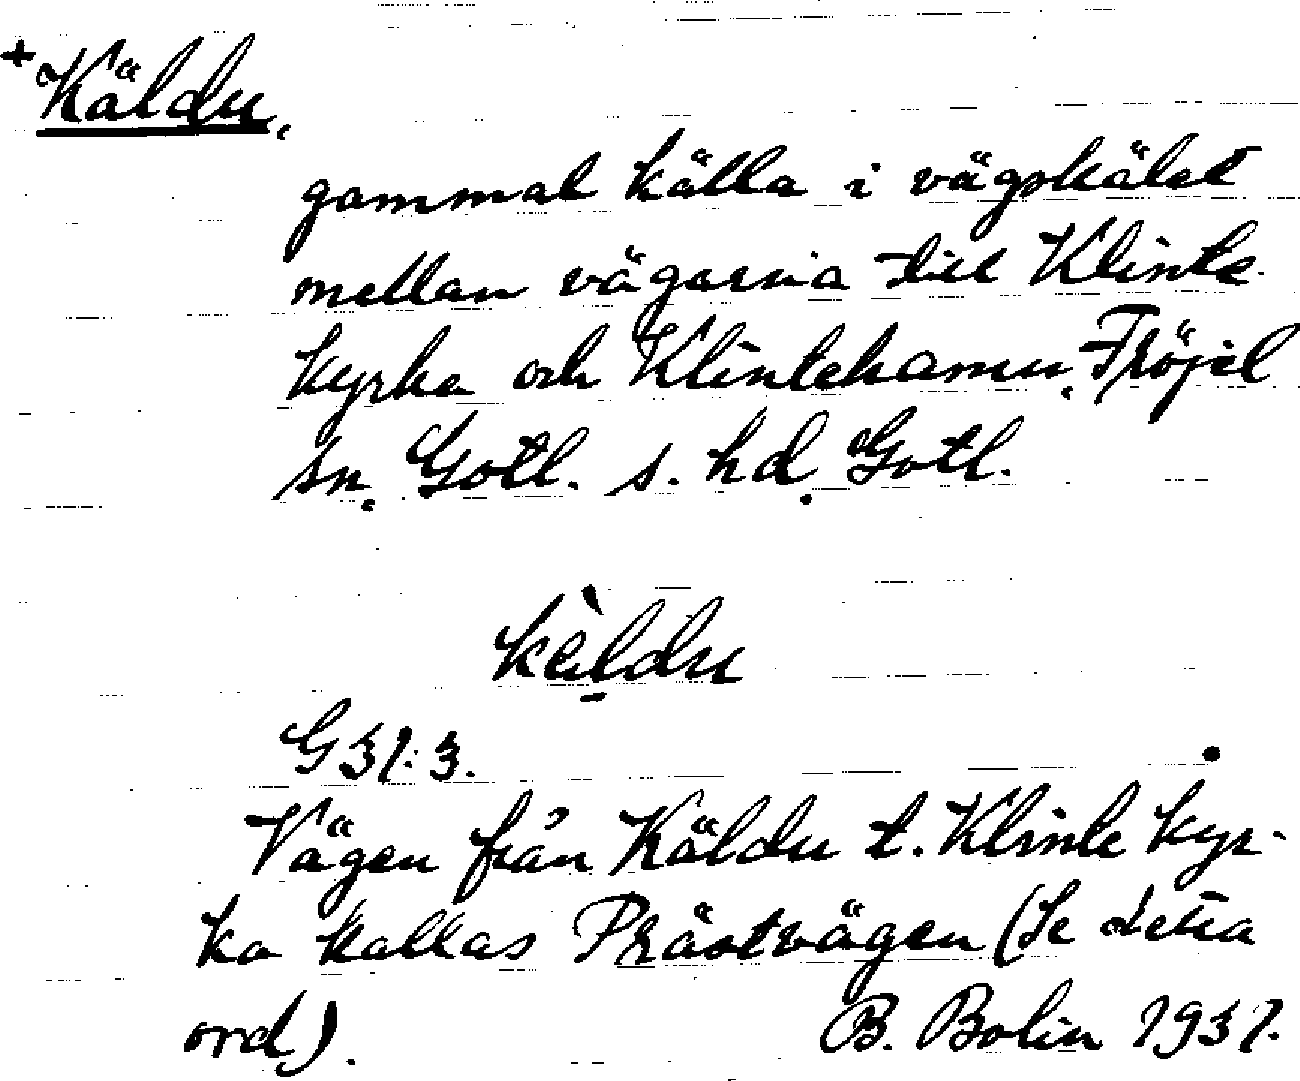 +Käldu,
gammal källa i vägskälet
mellan vägarna till Klinte
kyrka och Klintehamn, Fröjel
sn, Gotl. s. hd, Gotl.
kèldu
G 37:3.
Vägen från Käldu t. Klinte kyr-
ka kallas Prästvägen (Se detta
ord).
B. Bolin 1937.